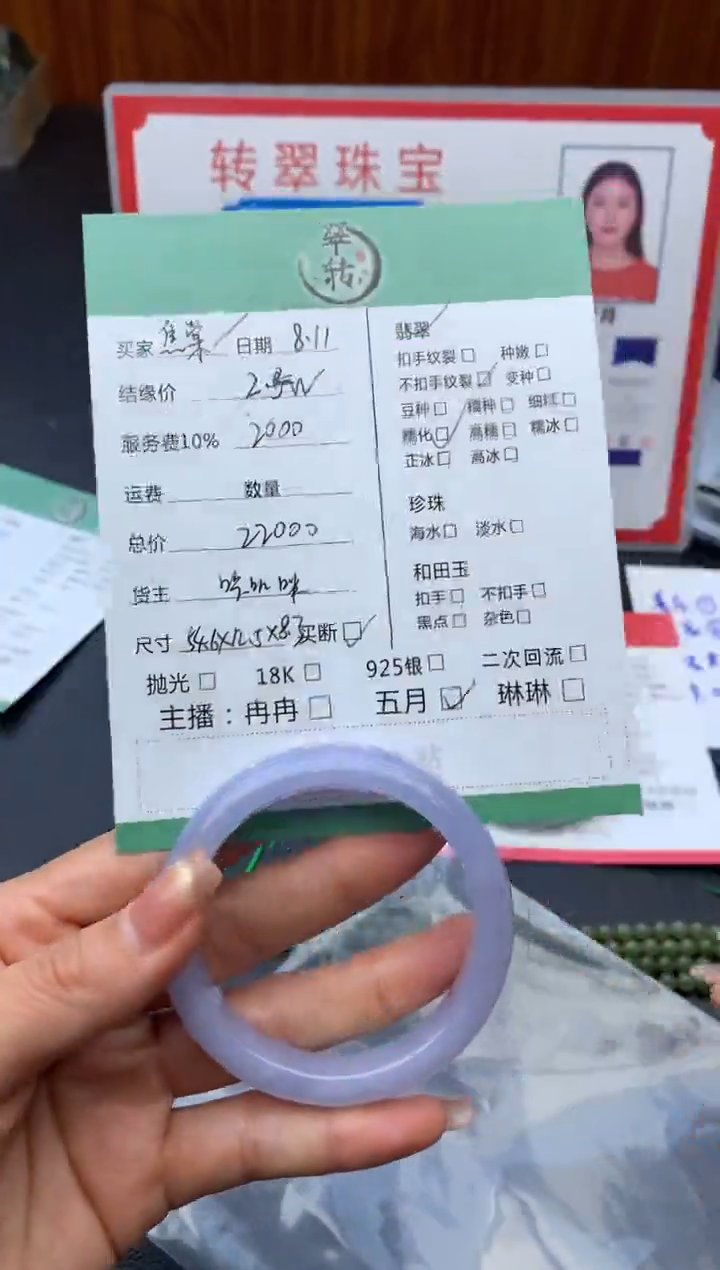 转翠珠宝
翠
转
买家 日期 8.11
结缘价
服务费10% 2000
运费 数量
总价 22000
货主
尺寸 买断☐
抛光☐ 18K☐ 925银☐ 二次回流☐
主播：冉冉☐ 五月☑ 琳琳☐
翡翠
扣手纹裂☐ 种嫩☐
不扣手纹裂☑ 变种☐
豆种☐ 糯种☐ 细糯☐
糯化☑ 高糯☐ 糯冰☐
正冰☐ 高冰☐
珍珠
海水☐ 淡水☐
和田玉
扣手☐ 不扣手☐
黑点☐ 杂色☐
月